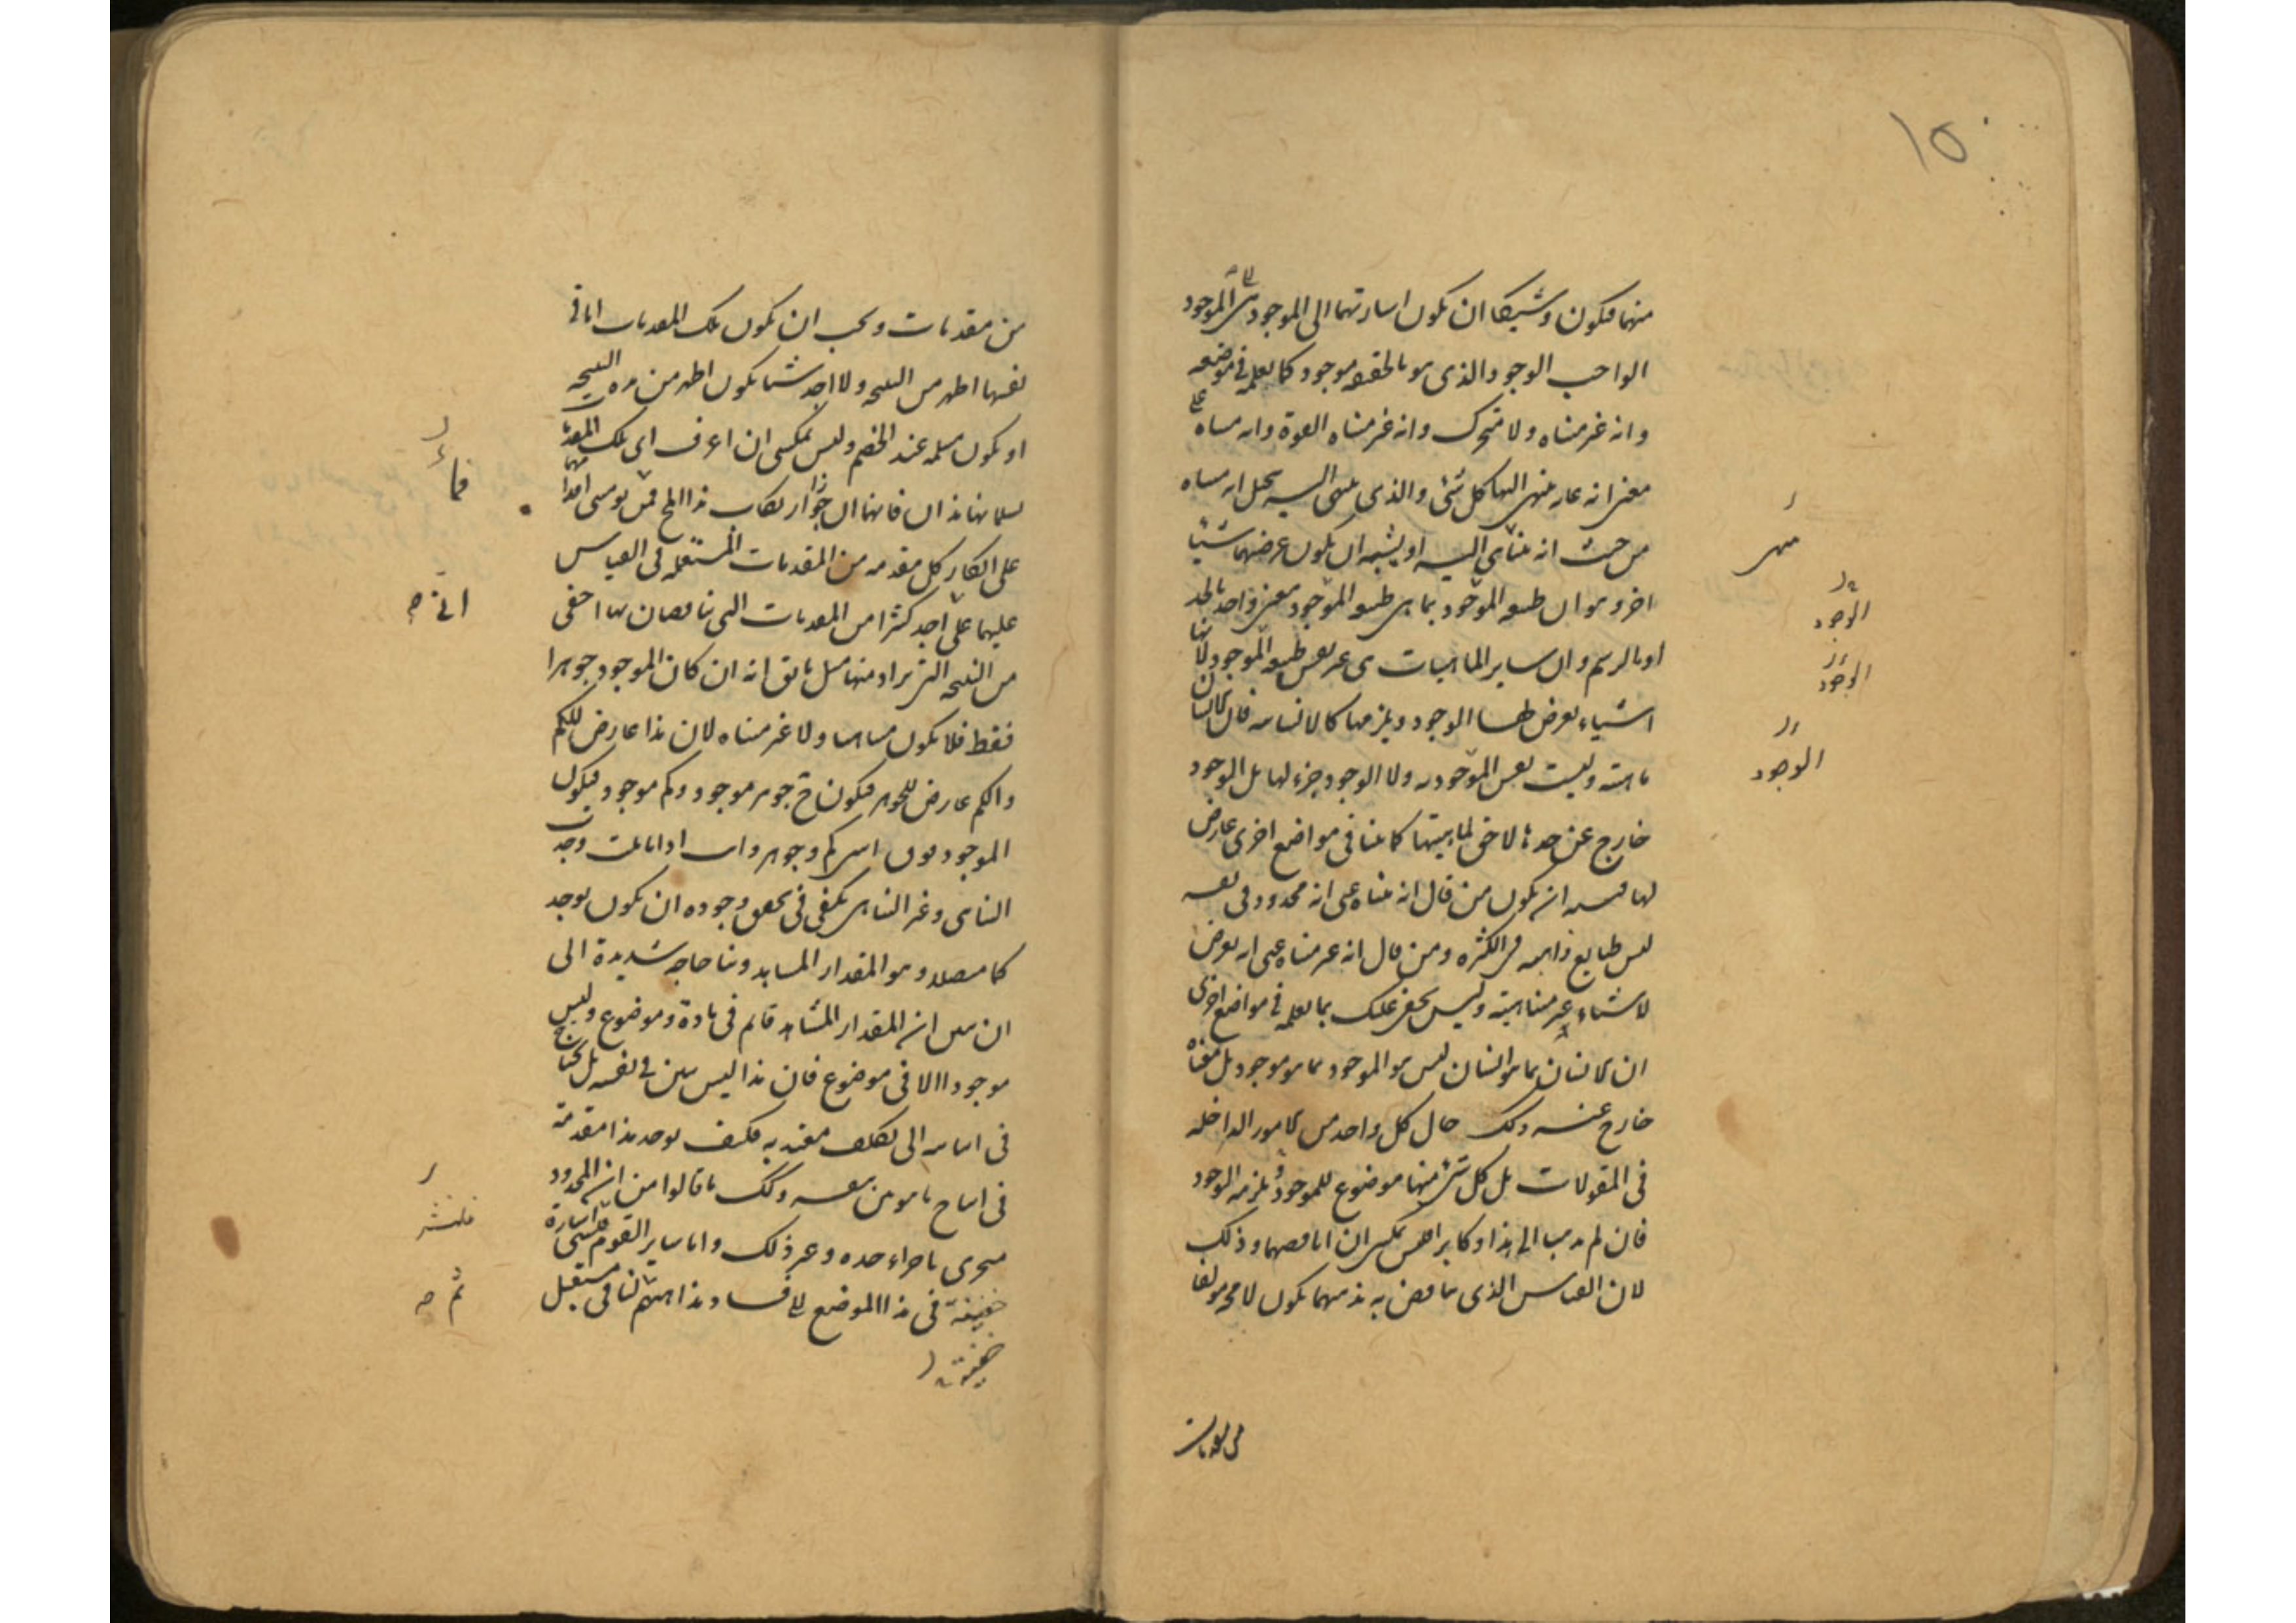 ١٥
منهما فيكون وشيكا ان يكون اشارتهما الى الموجود الموجود
الواجب الوجود الذى هو بالحقيقه موجود كما نعلمه فى موضعه
وانه غير متناه ولا متحرك وانه غير متناه القوة وانه متناه على
معنى انه غايه ينتهى اليها كل شئ والذى ينتهى اليه يتخيل انه متناه
من حيث انه متناهى اليه او يشبه ان يكون غرضهما شيئا
اخر وهو ان طبيعه الموجود بما هى طبيعه الموجود معنى واحد بالحد
او بالرسم وان ساير الماهيات هى غير نفس طبيعه الموجود لانها
اشياء يعرض لها الموجود ويلزمها كالانسانيه فان الانسان
ماهية وليست نفس الموجود ولا الوجود جزء لها بل الوجود
خارج عن حدها لاحق لماهيتها كما بينا فى مواضع اخرى عارض
لها فيشبه ان يكون من قال انه متناه عنى انه محدود فى نفسه
ليس طبايع ذاهبه فى الكثره ومن قال انه غير متناه عنى انه يعرض
لاشياء غير متناهية وليس يخفى عليك بما تعلمه فى مواضع اخرى
ان الانسان بما هو انسان ليس هو الموجود بما هو موجود بل معناه
خارج عنه وكذلك حال كل واحد من الامور الداخله
فى المقولات بل كل شئ منها موضوع للموجود ويلزمه الوجود
فان لم يذهبا الى هذا وكابرا فليس يمكن ان اناقضهما وذلك
لان القياس الذى يناقض به مذهبهما يكون لا محه مولفا
من مقدمات
الوجود
الوجود
الوجود
من مقدمات ويجب ان يكون تلك المقدمات اما فى
نفسها اظهر من النتيجه ولا اجد شيئا يكون اظهر من هذه النتيجه
او يكون مسلمه عند الخصم وليس يمكننى ان اعرف اى تلك المقدمات
يسلمانها هذان فانهما ان جوزا ارتكاب هذا المح فمن يومنى اقدامهما
على انكار كل مقدمه من المقدمات المستعمله فى القياس
عليهما على اجد كثيرا من المقدمات التى يناقضان بها اخفى
من النتيجه التى يراد منها مثل ما يق انه ان كان الموجود جوهرا
فقط فلا يكون متناهيا ولا غير متناه لان هذا عارض للكم
والكم عارض للجوهر فيكون ح جوهر موجود وكم موجود فيكون
الموجود فوق اثنين كم وجوهر وانت اذا تاملت وجدت
التناهى وغير التناهى يكفى فى تحقق وجوده ان يكون يوجد
كما متصلا وهو المقدار المشاهد وبنا حاجه شديدة الى
ان نبين ان المقدار المشاهد قائم فى مادة وموضوع وليس
موجودا الا فى موضوع فان هذا ليس بين فى نفسه بل نحتاج
فى اثباته الى تكلف معتد به فكيف يوخذ هذا مقدمة
فى انتاج ما هو بين بنفسه وكذلك ما قالوا من ان المحدود
يتجزى باجزاء حده وغير ذلك واما ساير القوم فلنشر اشارة
خفيفة فى هذا الموضع الى فساد مذاهبهم لنا فى مستقبل
خفيفة
ثم